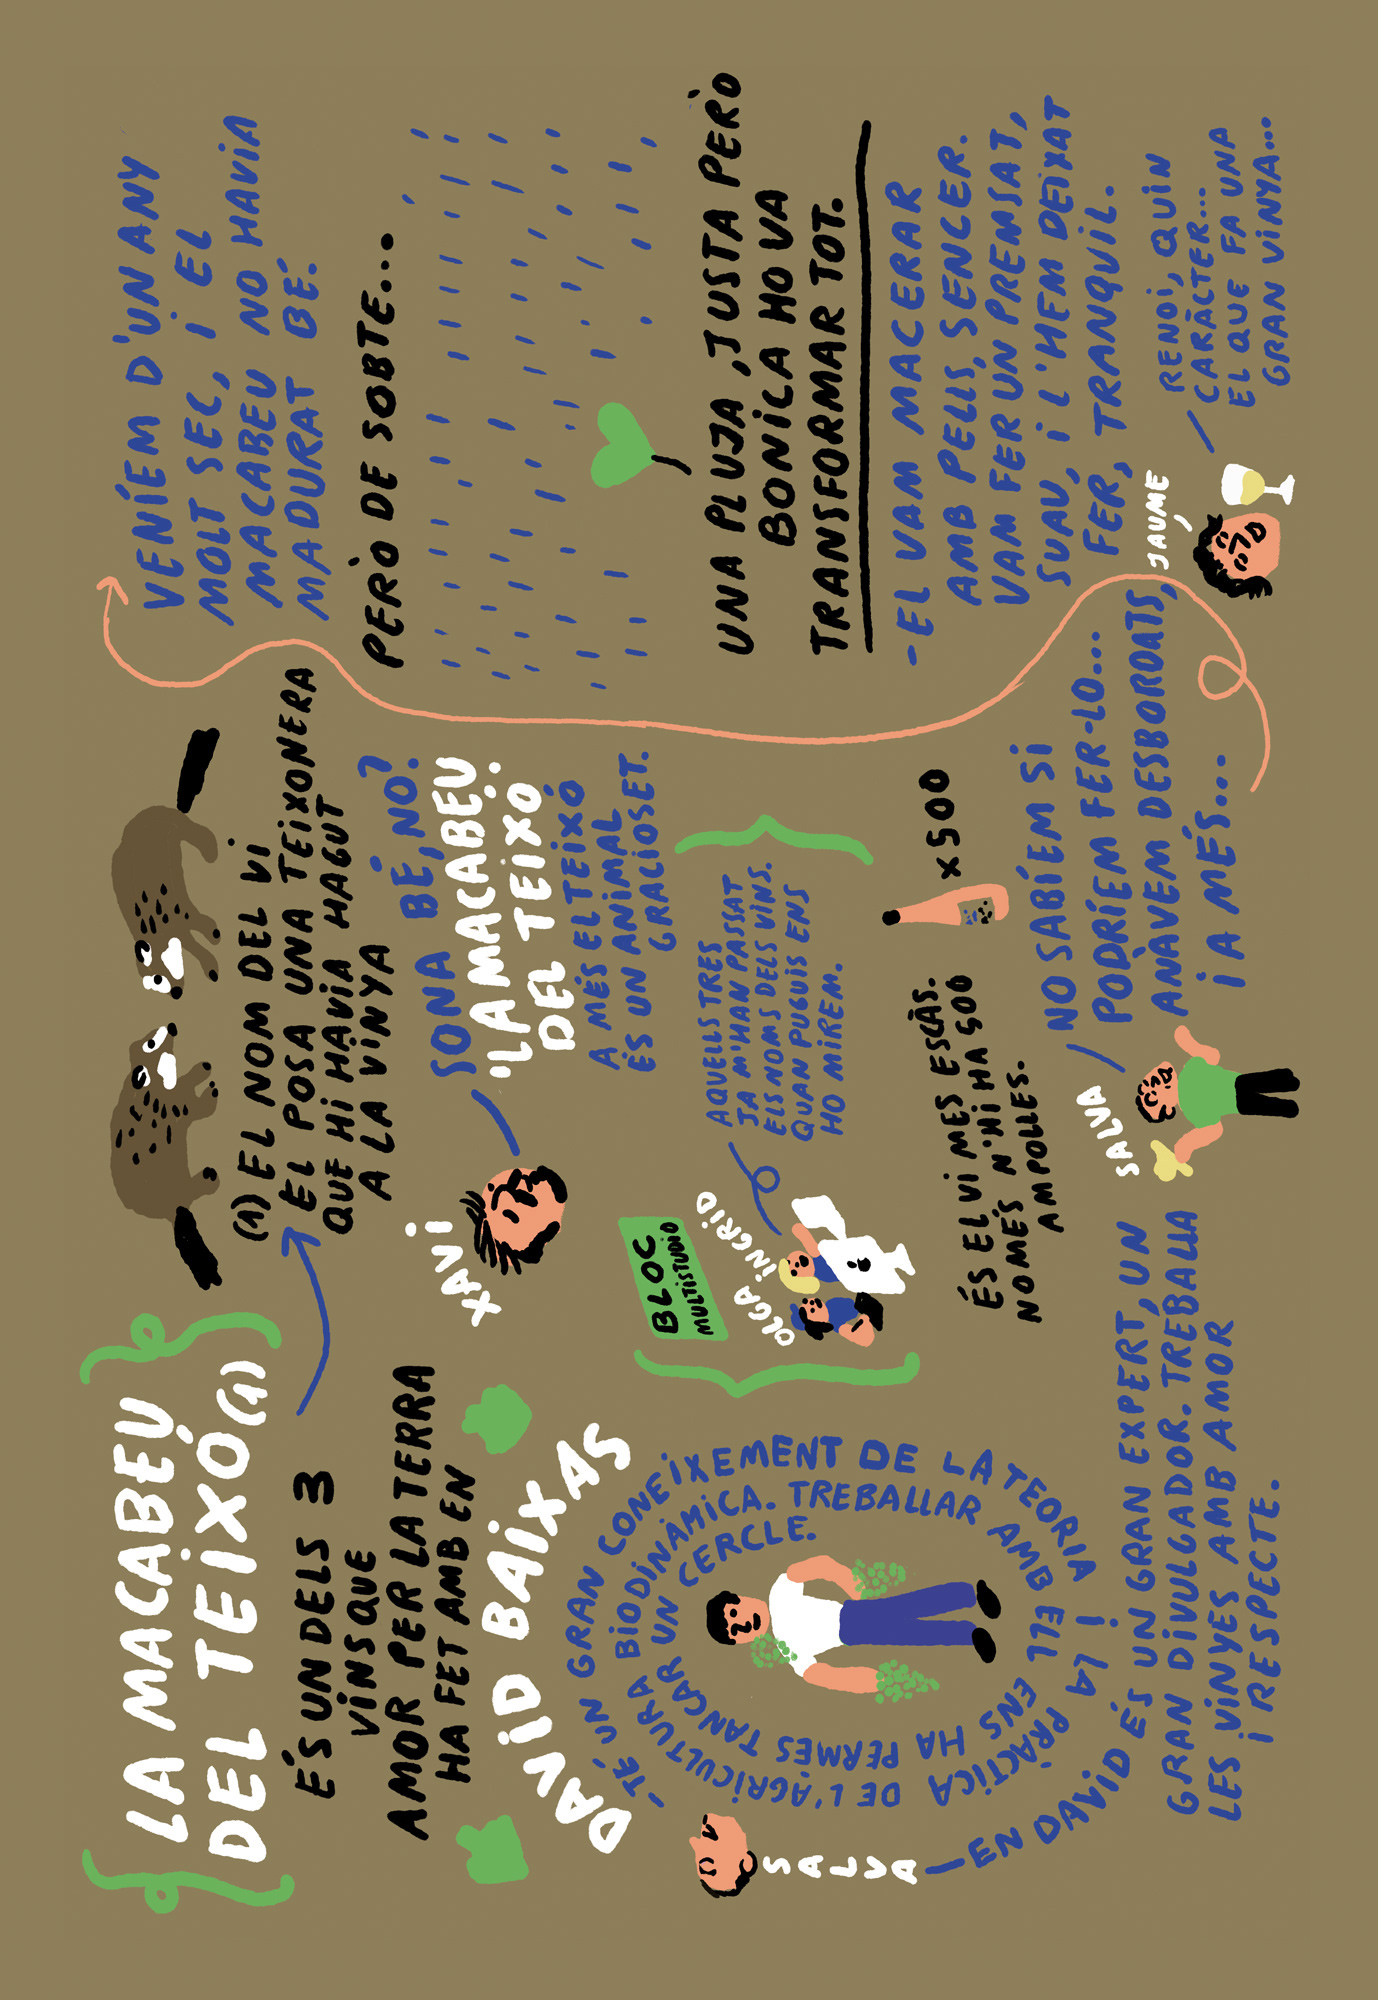 LA MACABEU
DEL TEIXÓ (1)
ÉS UN DELS 3
VINS QUE
AMOR PER LA TERRA
HA FET AMB EN
DAVID BAIXAS
- TÉ UN GRAN CONEIXEMENT DE LA TEORIA I LA PRÀCTICA DE L'AGRICULTURA BIODINÀMICA. TREBALLAR AMB ELL ENS HA PERMÈS TANCAR UN CERCLE.
SALVA
- EN DAVID ÉS UN GRAN EXPERT, UN
GRAN DIVULGADOR. TREBALLA
LES VINYES AMB AMOR
I RESPECTE.
(1) EL NOM DEL VI
EL POSA UNA TEIXONERA
QUE HI HAVIA HAGUT
A LA VINYA
XAVI
SONA BÉ, NO?
"LA MACABEU
DEL TEIXÓ"
A MÉS EL TEIXÓ
ÉS UN ANIMAL
GRACIOSET.
BLOC
MULTISTUDIO
OLGA
INGRID
AQUELLS TRES
JA M'HAN PASSAT
ELS NOMS DELS VINS.
QUAN PUGUIS ENS
HO MIREM.
ÉS EL VI MÉS ESCÀS.
NOMÉS N'HI HA 500
AMPOLLES.
x500
SALVA
NO SABÍEM SI
PODRÍEM FER-LO...
ANÀVEM DESBORDATS,
I A MÉS...
VENÍEM D'UN ANY
MOLT SEC, I EL
MACABEU NO HAVIA
MADURAT BÉ.
PERÒ DE SOBTE...
UNA PLUJA, JUSTA PERÒ
BONICA HO VA
TRANSFORMAR TOT.
- EL VAM MACERAR
AMB PELLS, SENCER.
VAM FER UN PREMSAT,
SUAU, I L'HEM DEIXAT
FER, TRANQUIL.
JAUME
RENOI, QUIN
CARÀCTER...
EL QUE FA UNA
GRAN VINYA...